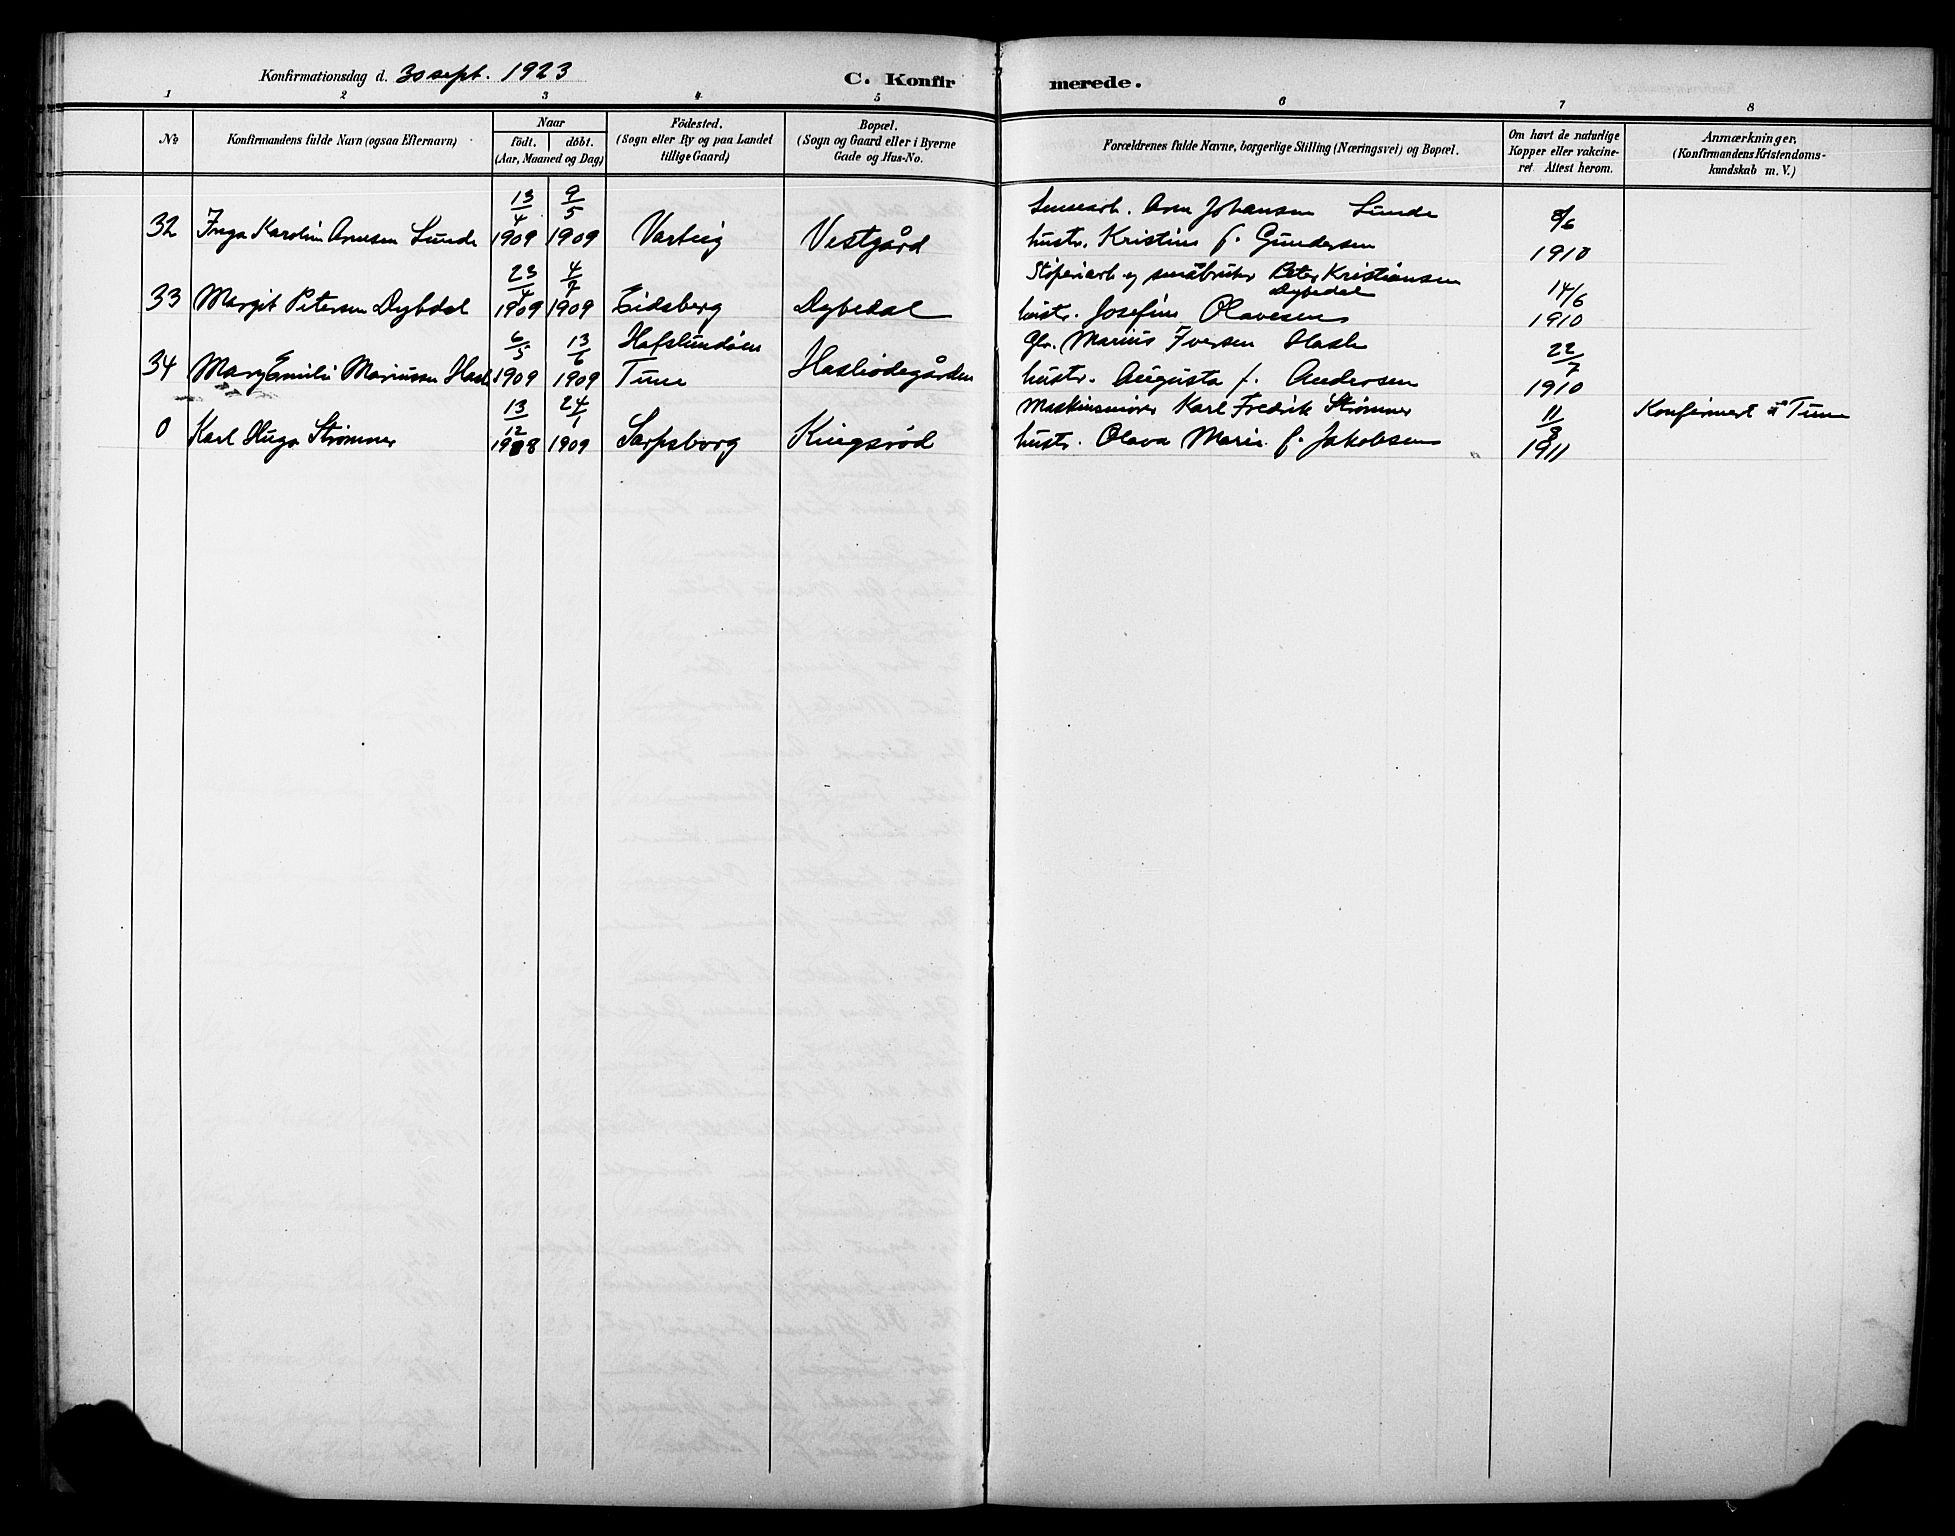 Konfirmationsdag d. 30 sept. 1923
C. Konfirmerede.
1 2 3 4 5 6 7 8
No
Konfirmandens fulde Navn (ogsaa Efternavn)
Naar
födt. döbt.
(Aar, Maaned og Dag)
Födested.
(Sogn eller By og paa Landet
tillige Gaard)
Bopæl.
(Sogn og Gaard eller i Byerne
Gade og Hus-No.
Forældrenes fulde Navne, borgerlige Stilling (Næringsvei) og Bopæl.
Om havt de naturlige
Kopper eller vakcine-
ret Attest herom.
Anmærkninger,
(Konfirmandens Kristendoms-
kundskab m. V.)
13/4 9/5 Arne Johansen Sunde 8/6
32 Inga Karolin Arnesen Sunde 1909 1909 Varteig Vestgård hustr. Kristine f. Gundersen 1910
23/4 4/7 Støperiarb. og småbruker Peter Kristiansen 14/6
Dybedal
33 Margit Petersen Dybdal 1909 1909 Eidsberg Dybedal hustr. Josefine Olavesen 1910
6/5 13/6 Hafslundsöen Marius Iversen Hasle 22/7
34 Mary Emilie Mariussen Hasle 1909 1909 Tune hustr. Augusta f. Andersen 1910
13/12 24/1 Maskinsmører Karl Fredrik Strømner 11/9 Konfirmert i Tune
0 Karl Hugo Strømner 1908 1909 Sarpsborg Kingsrød hustr. Olava Marie f. Jakobsen 1911